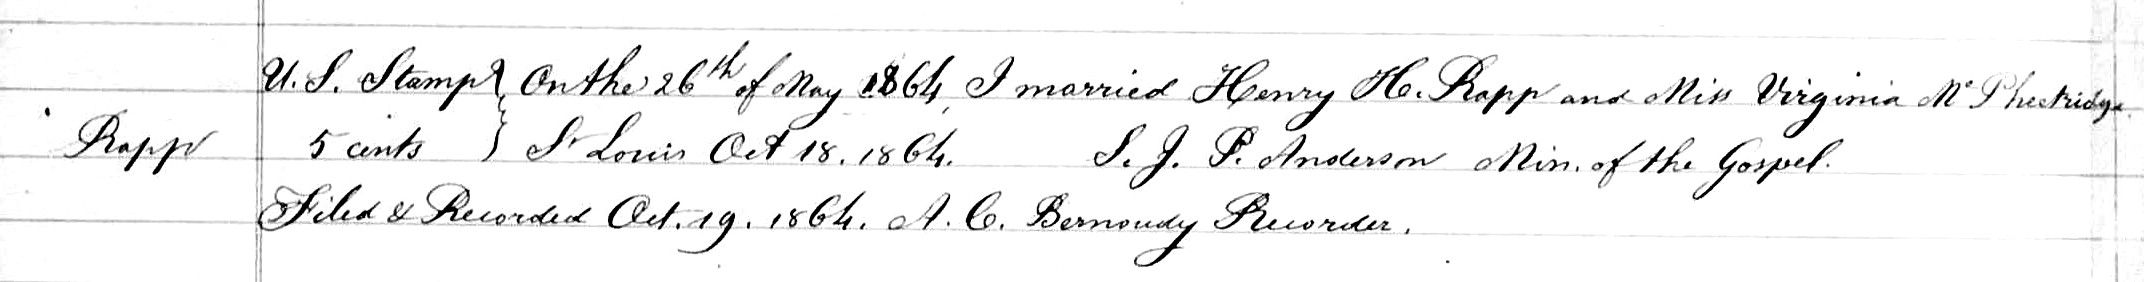 U. S. Stamp } On the 26th of May 1864, I married Henry H. Rapp and Miss Virginia Mc Pheetridge
Rapp 5 cents } St Louis Oct 18. 1864. S. J. P. Anderson Min. of the Gospel.
Filed & Recorded Oct. 19. 1864. A. C. Bernoudy Recorder.